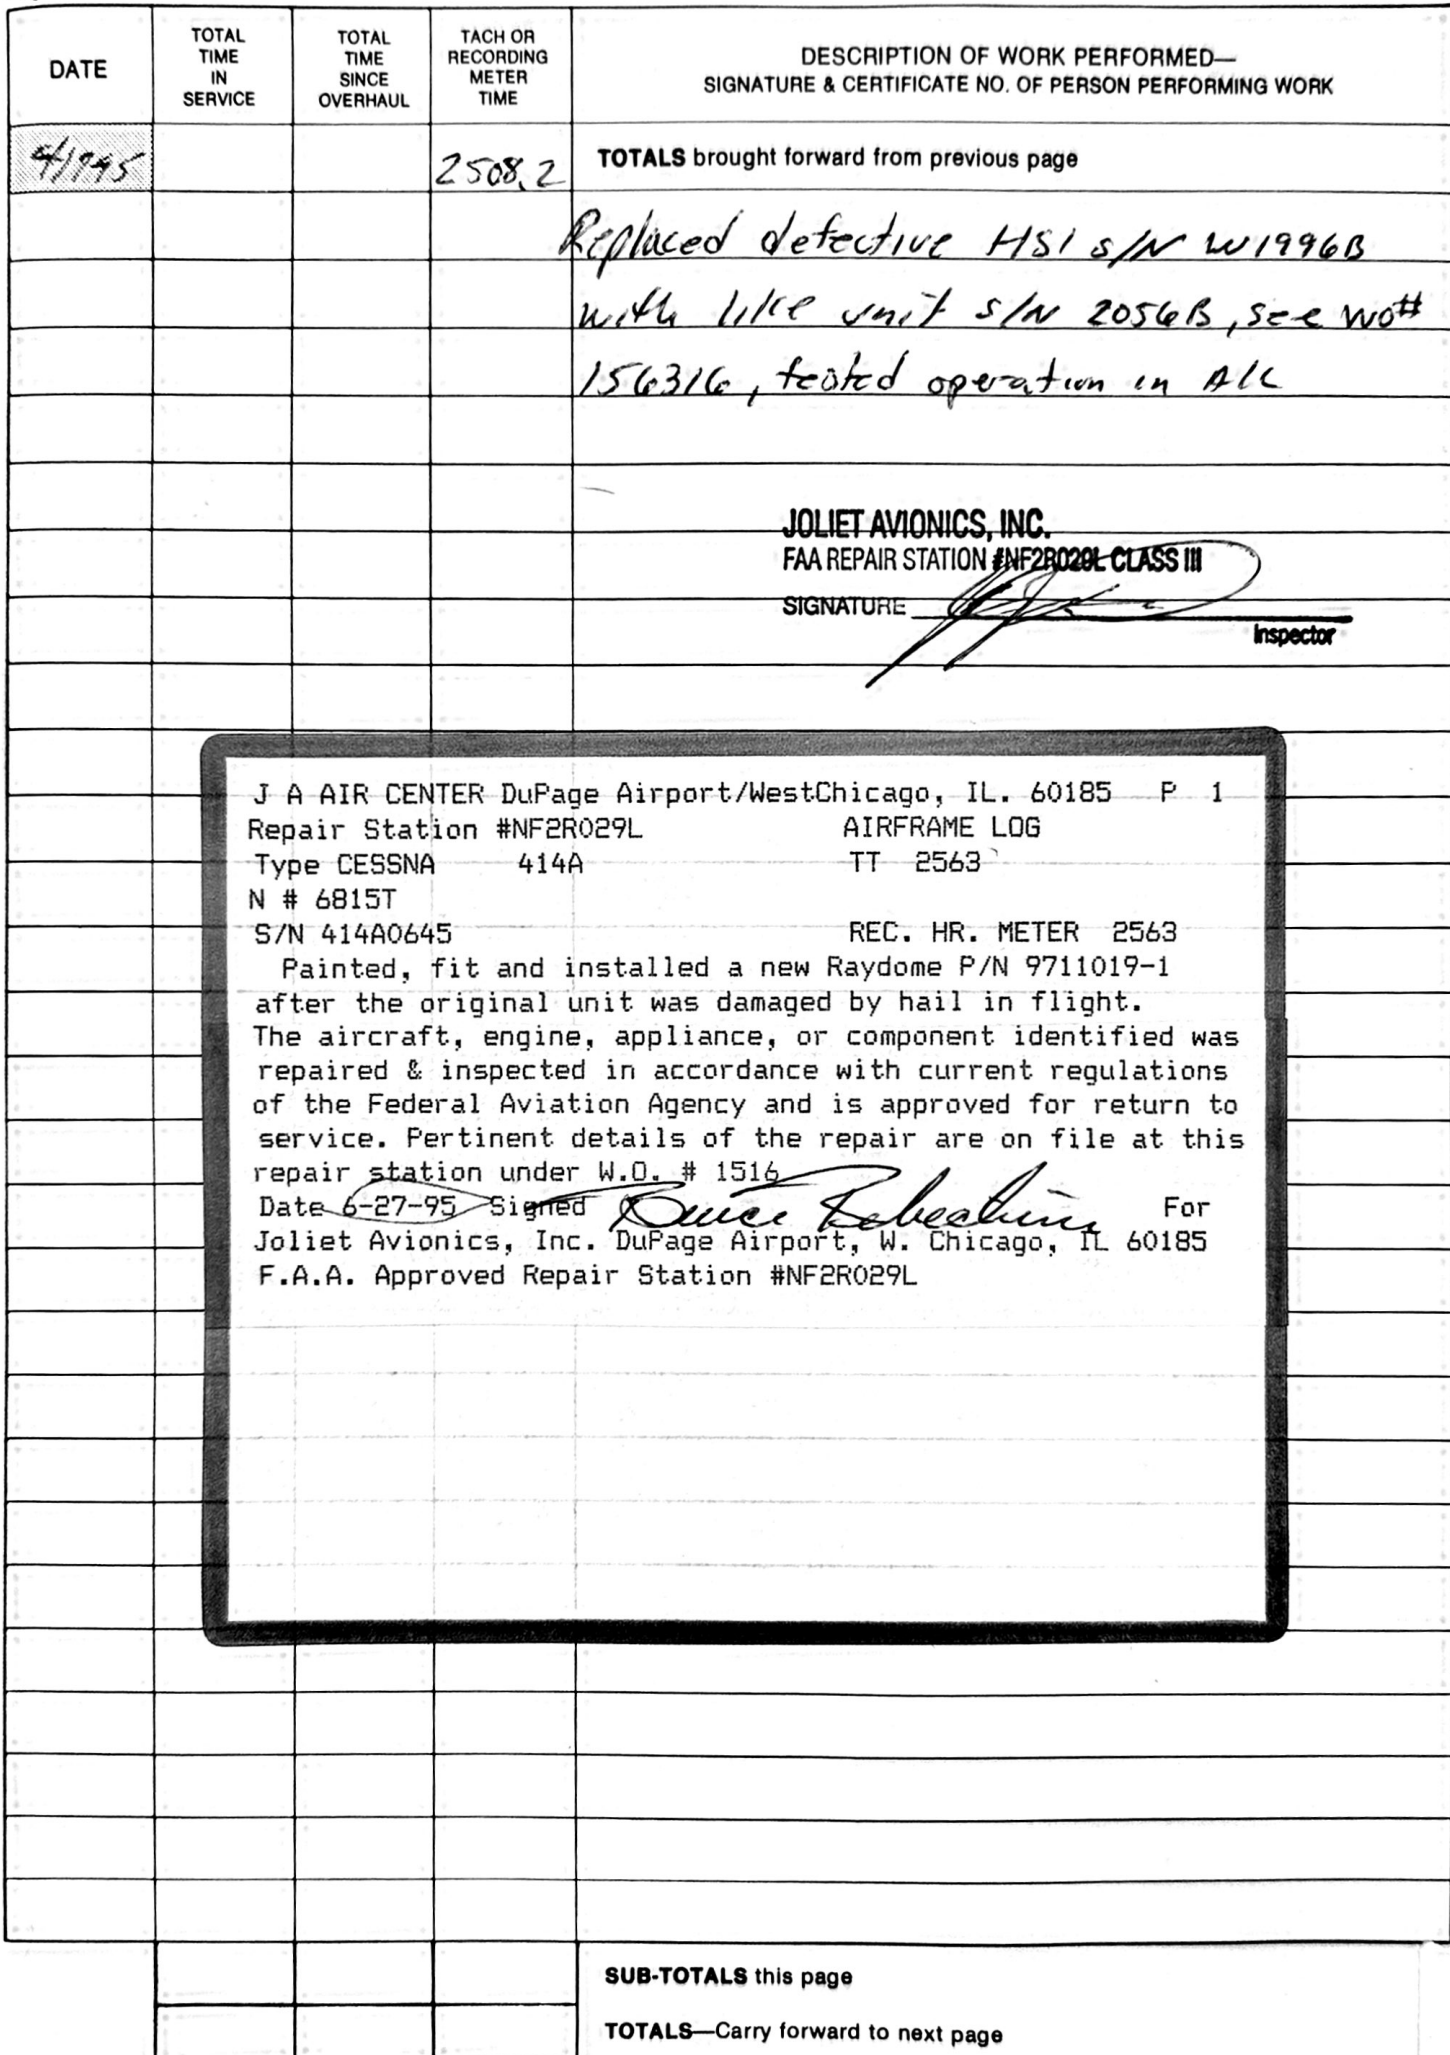 DATE
TOTAL TIME IN SERVICE
TOTAL TIME SINCE OVERHAUL
TACH OR RECORDING METER TIME
DESCRIPTION OF WORK PERFORMED—
SIGNATURE & CERTIFICATE NO. OF PERSON PERFORMING WORK
2508.2
TOTALS brought forward from previous page
Replaced defective HSI s/N W1996B
with like unit s/N 2056B, see WO#
156316, tested operation in A/C
JOLIET AVIONICS, INC.
FAA REPAIR STATION #NF2R029L CLASS III
SIGNATURE
Inspector
J A AIR CENTER DuPage Airport/WestChicago, IL. 60185 P 1
Repair Station #NF2R029L AIRFRAME LOG
Type CESSNA 414A TT 2563
N # 6815T
S/N 414A0645 REC. HR. METER 2563
Painted, fit and installed a new Raydome P/N 9711019-1
after the original unit was damaged by hail in flight.
The aircraft, engine, appliance, or component identified was
repaired & inspected in accordance with current regulations
of the Federal Aviation Agency and is approved for return to
service. Pertinent details of the repair are on file at this
repair station under W.O. # 1516
Date 6-27-95 Signed Bruce For
Joliet Avionics, Inc. DuPage Airport, W. Chicago, IL 60185
F.A.A. Approved Repair Station #NF2R029L
SUB-TOTALS this page
TOTALS—Carry forward to next page